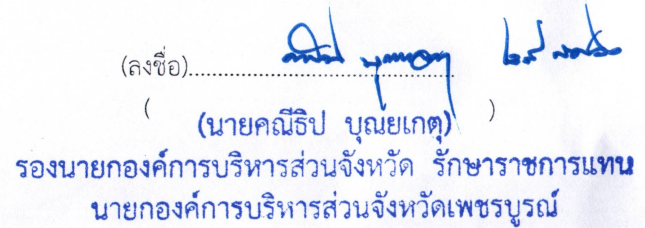 (ลงชื่อ)..........................................
( )
(นายคณีธิป บุณยเกตุ)
รองนายกองค์การบริหารส่วนจังหวัด รักษาราชการแทน
นายกองค์การบริหารส่วนจังหวัดเพชรบูรณ์